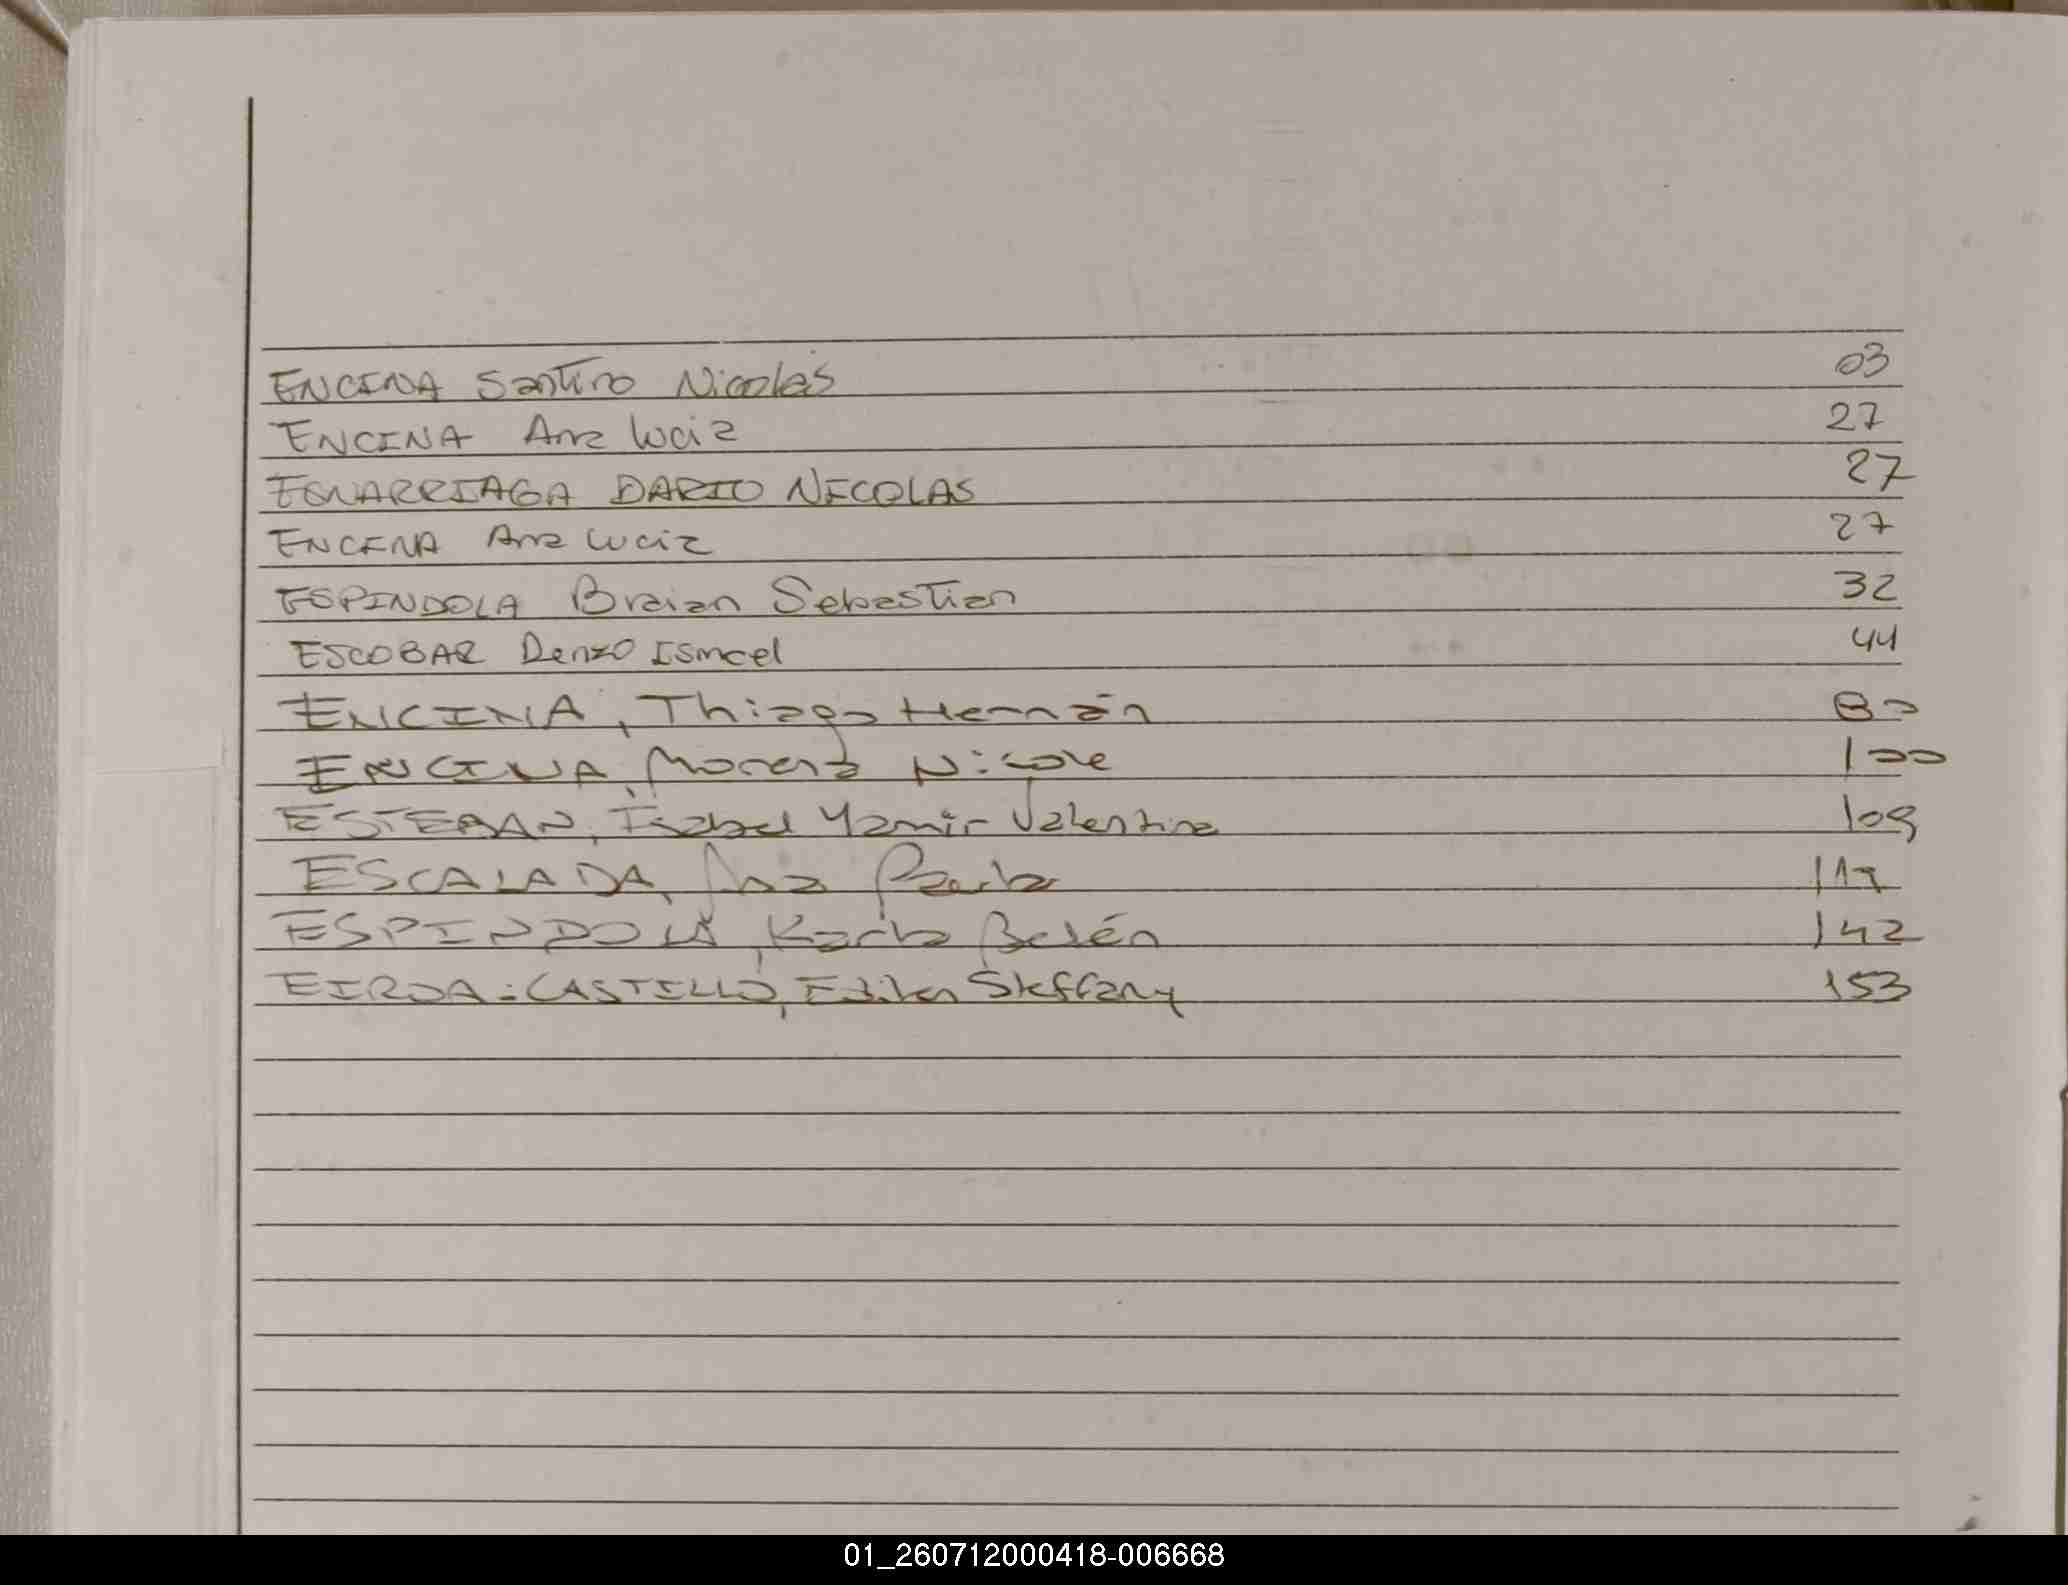 ENCINA Santino Nicolás 03
ENCINA Ana Lucia 27
EGUARRIAGA DARIO NICOLAS 27
ENCINA Ana Lucia 27
ESPINDOLA Braian Sebastian 32
ESCOBAR Renzo Ismael 44
ENCINA, Thiago Hernán 80
ENCINA, Morena Nicole 100
ESTEBAN, Isabel Yamir Valentina 109
ESCALADA, Ana Paula 117
ESPINDOLA, Karla Belén 142
CASTILLO, Steffany 153
01_260712000418-006668